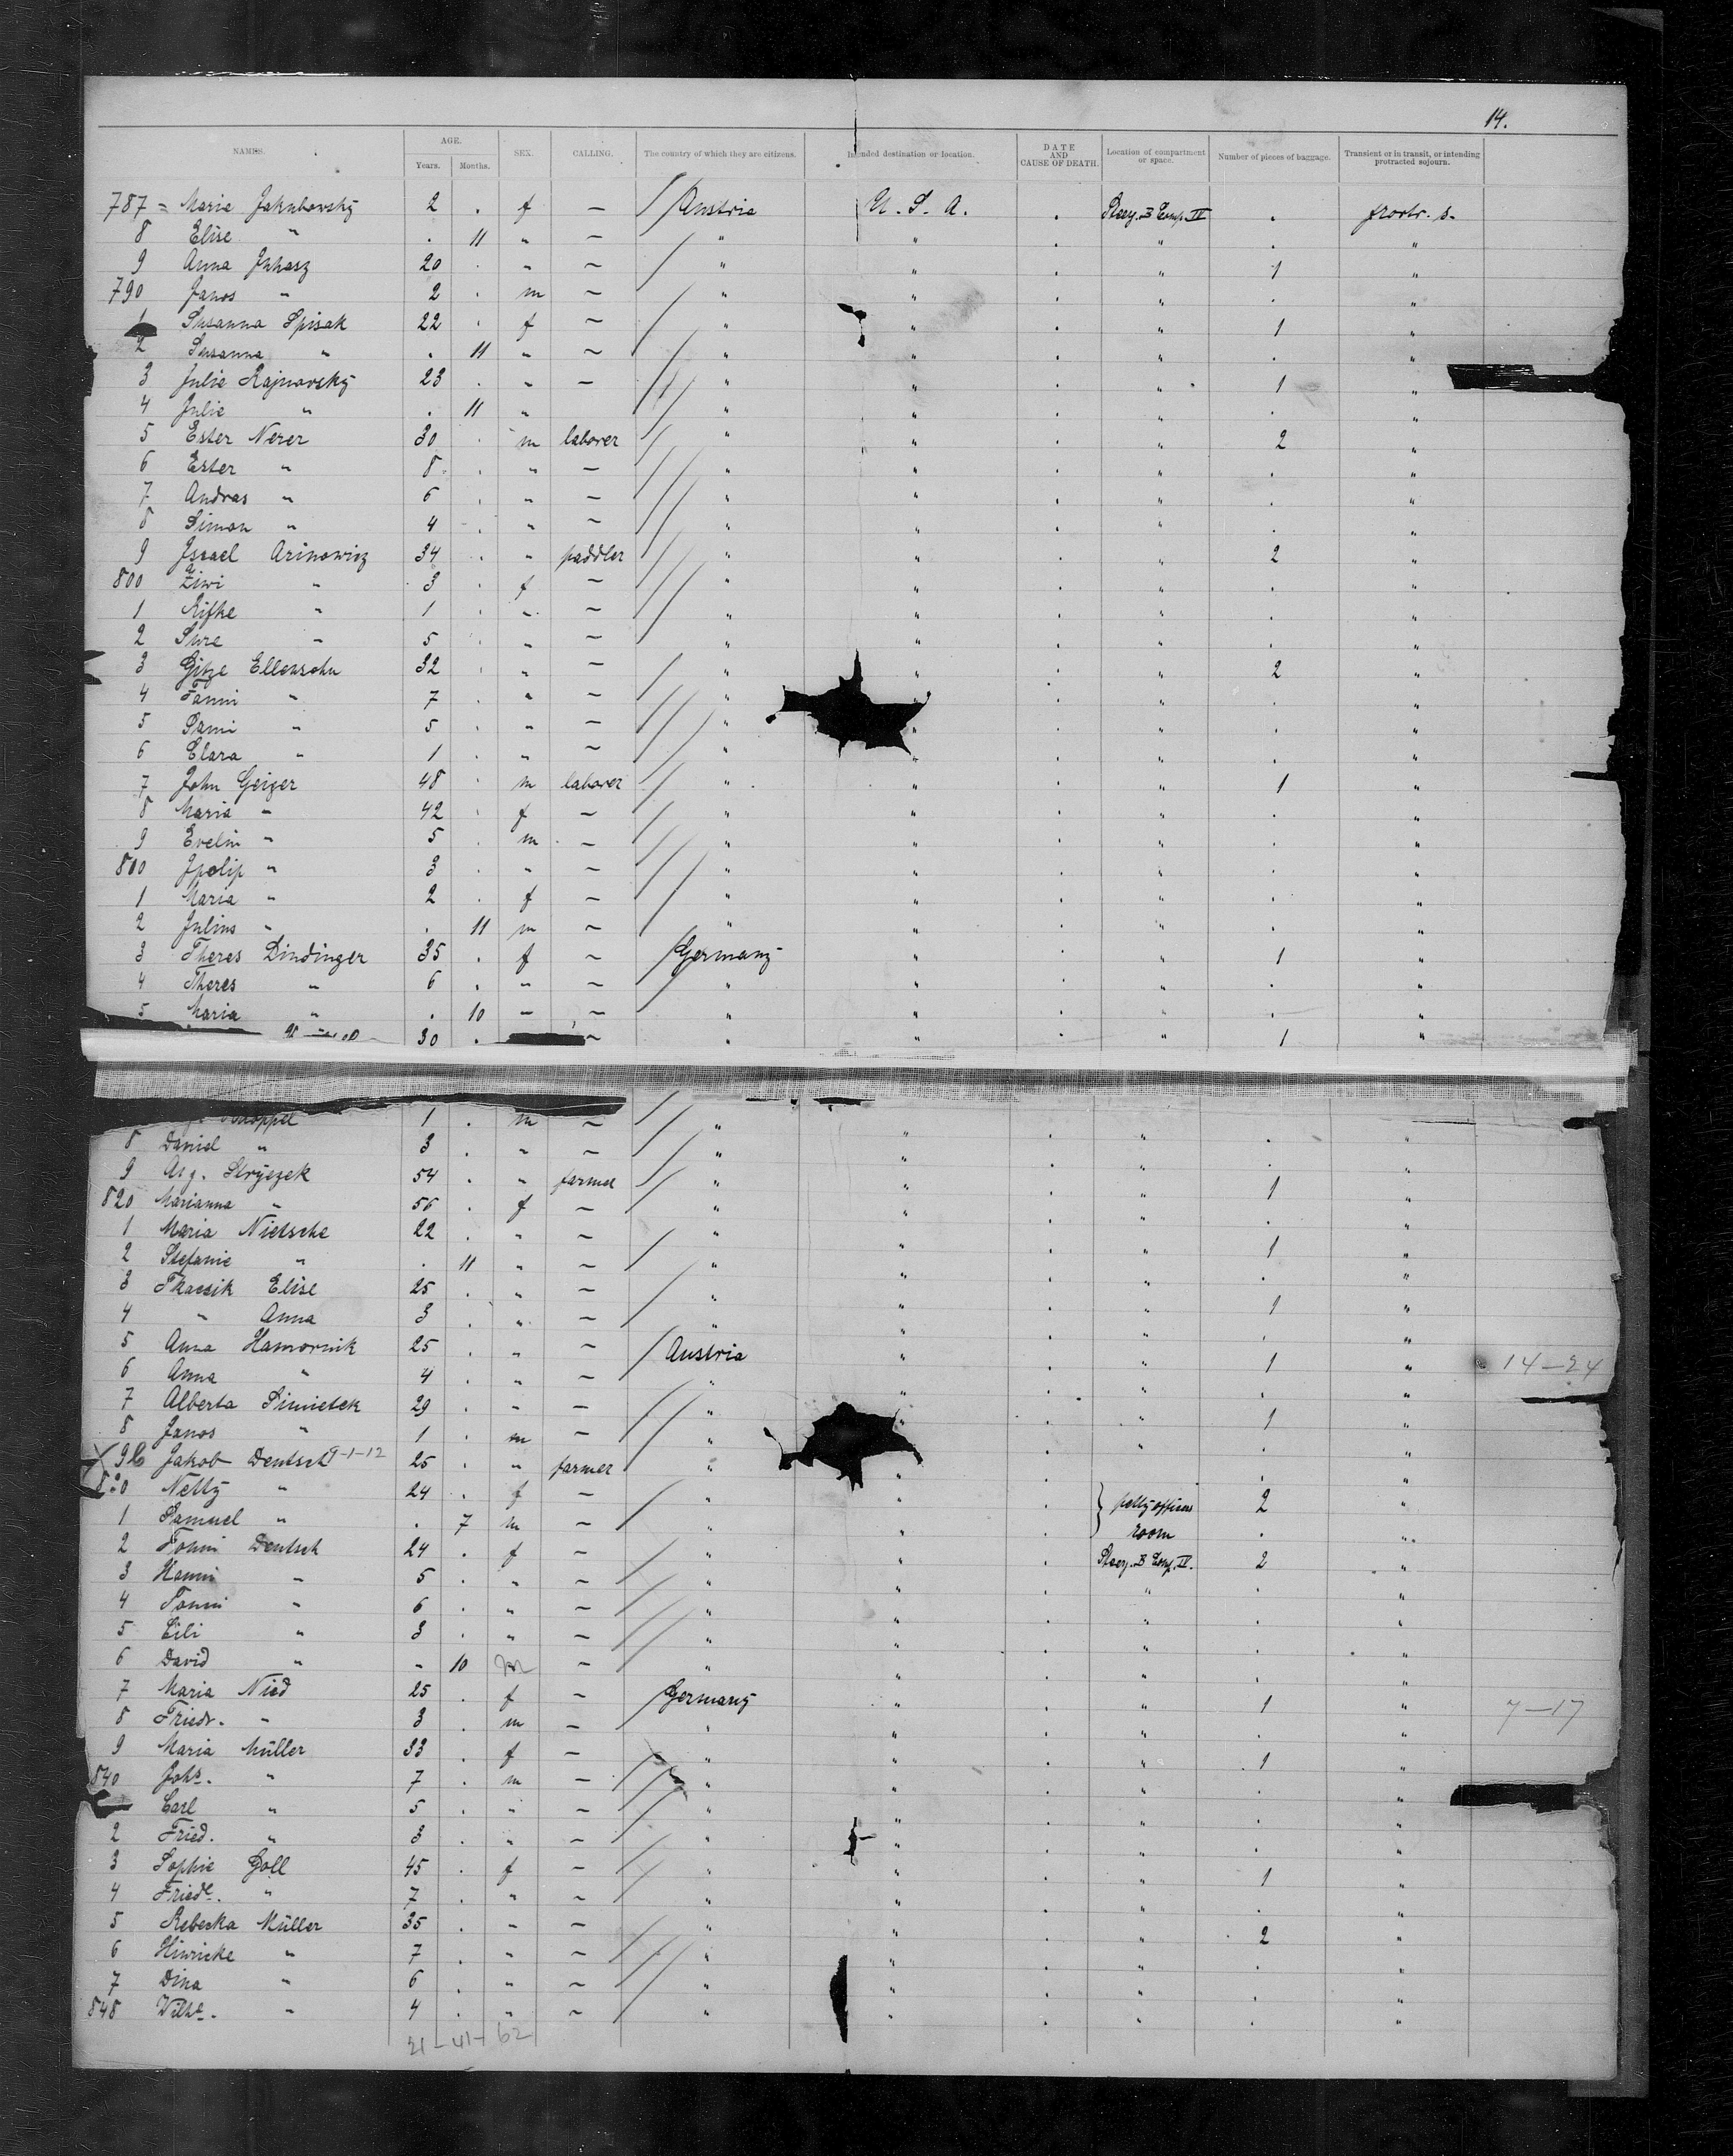 14.
NAMES. AGE. Years. Months. SEX. CALLING. The country of which they are citizens. Intended destination or location. DATE AND CAUSE OF DEATH. Location of compartment or space. Number of pieces of baggage. Transient or in transit, or intending protracted sojourn.
787 = Maria Jakubowsky 2 . f — Austria U. S. A. . Steer. Comp. IV .
8 Elise " . 11 " — " " . " . "
9 Anna Juhasz 20 . " — " " . " 1 "
790 Janos " 2 . m — " " . " . "
1 Susanna Spisak 22 . f — " " . " 1 "
2 Susanna " . 11 " — " " . " . "
3 Julie Rajnovsky 23 . " — " " . " 1 "
4 Julie " . 11 " " " . " . "
5 Ester Nerer 30 . m laborer " " . " 2 "
6 Ester " 8 . " — " " . " . "
7 Andras " 6 . " — " " . " . "
8 Simon " 4 . " — " " . " . "
9 Israel Arinowicz 34 . " paddler " " . " 2 "
800 Ziwi " 3 . f — " " . " . "
1 Rifke " 1 . " — " " . " . "
2 Sure " 5 . " — " " . " . "
3 Gitze Ellensohn 32 . " — " " . " 2 "
4 Fanni " 7 . " — " " . " . "
5 Sami " 5 . " — " " . " . "
6 Clara " 1 . " — " " . " . "
7 John Geiger 48 . m laborer " " . " 1 "
8 Maria " 42 . f — " " . " . "
9 Evelin " 5 . m — " " . " . "
810 " 3 . " — " " . " . "
1 Maria " 2 . f — " " . " . "
2 Julius " . 11 m — " " . " . "
3 Theres Dindinger 35 . f — Germany " . " 1 "
4 Theres " 6 . " — " " . " . "
5 Maria " . 10 " — " " . " . "
30 . — " " . " 1 "
1 . m — " " . " . "
8 Daniel " 3 . " — " " . " . "
9 Aug. Stryszek 54 . " farmer " " . " 1 "
820 Marianna " 56 . f — " " . " . "
1 Maria Nietsche 22 . " — " " . " 1 "
2 Stefanie " . 11 " — " " . " . "
3 Tkacsik Elise 25 . " — " " . " 1 "
4 " Anna 3 . " — " " . " . "
5 Anna Hamornik 25 . " — Austria " . " 1 " 14-24
6 Anna " 4 . " — " " . " . "
7 Alberta Simietek 29 . " — " " . " 1 "
8 Janos " 1 . m — " " . " . "
X 9 Jakob Deutsch 9-1-12 25 . " farmer " " . "
830 Netty " 24 . f — " " . } petty officers 2 "
1 Samuel " . 7 m — " " . room . "
2 Fanni Deutsch 24 . f — " " . Steer. Comp. IV. 2 "
3 Hanni " 5 . " — " " . " . "
4 Fanni " 6 . " — " " . " . "
5 Cili " 3 . " — " " . " . "
6 David " - 10 m — " " . " . "
7 Maria Nied 25 . f — Germany " . " 1 " 7-17
8 Friedr. " 3 . m — " " . " . "
9 Maria Müller 33 . f — " " . " 1 "
840 Johs. " 7 . m — " " . " . "
Carl " 5 . " — " " . " . "
2 Fried. " 3 . " — " " . " . "
3 Sophie Goll 45 . f — " " . " 1 "
4 Friede. " 7 . " — " " . " . "
5 Rebecka Müller 35 . " — " " . " 2 "
6 Hinricke " 7 . " — " " . " . "
7 Dina " 6 . " — " " . " . "
848 Wilhe. " 4 . " — " " . " . "
21-41-62